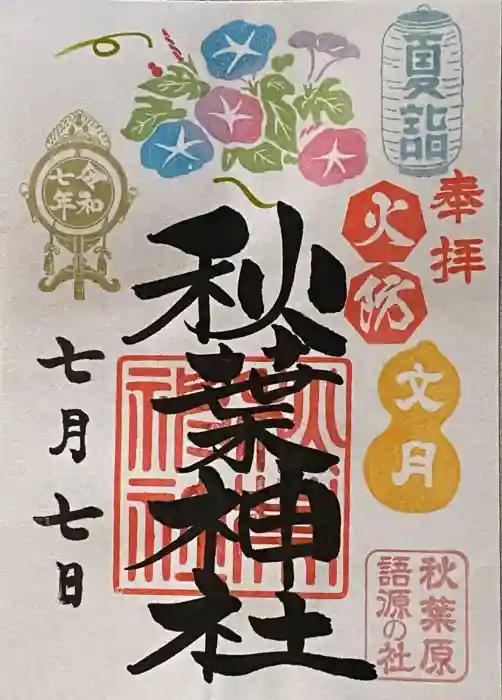 夏詣
奉拝
火防
文月
秋葉原
語源の社
秋葉神社
令和
七年
七月七日